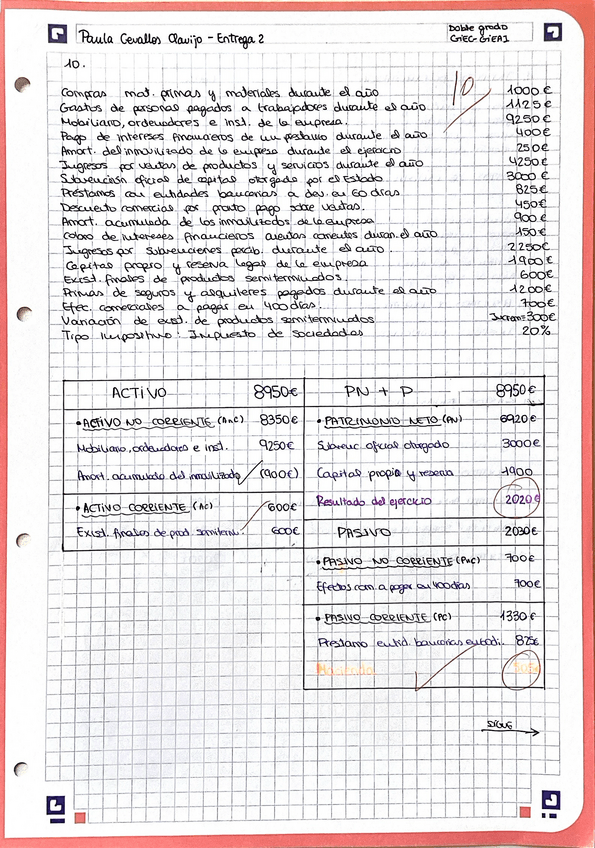 Paula Cevallos Clavijo - Entrega 2
Doble grado
GIEC GIEAI
10.
10
Compras mat. primas y materiales durante el año 1000€
Gastos de personal pagados a trabajadores durante el año 1125€
Mobiliario, ordenadores e inst. de la empresa. 9250€
Pago de intereses financieros de un préstamo durante el año 400€
Amort. del inmovilizado de la empresa durante el ejercicio 250€
Ingresos por ventas de productos y servicios durante el año 4250€
Subvención oficial de capital otorgada por el Estado 3000€
Préstamos con entidades bancarias a dev. en 60 días 825€
Descuento comercial por pronto pago sobre ventas. 450€
Amort. acumulada de los inmovilizados de la empresa 900€
Cobro de intereses financieros cuentas corrientes duran. el año 150€
Ingresos por subvenciones percib. durante el año. 2250€
Capital propio y reserva legal de la empresa 1900€
Exist. finales de productos semiterminados. 600€
Primas de seguros y alquileres pagados durante el año 1200€
Efec. comerciales a pagar en 400 días. 700€
Variación de exist. de productos semiterminados 300€
Tipo Impositivo: Impuesto de sociedades 20%
ACTIVO 8950€
PN + P 8950€
• ACTIVO NO CORRIENTE (AnC) 8350€
• PATRIMONIO NETO (PN) 6920€
Mobiliario, ordenadores e inst. 9250€
Subvenc. oficial otorgado 3000€
Amort. acumulada del inmovilizado (900€)
Capital propio y reserva 1900
• ACTIVO CORRIENTE (AC) 600€
Resultado del ejercicio 2020€
Exist. finales de prod. semitermi. 600€
PASIVO 2030€
• PASIVO NO CORRIENTE (PnC) 700€
Efectos com. a pagar en 400 días 700€
• PASIVO CORRIENTE (PC) 1330€
Préstamo entid. bancarias 825€
Hacienda 505€
SIGUE